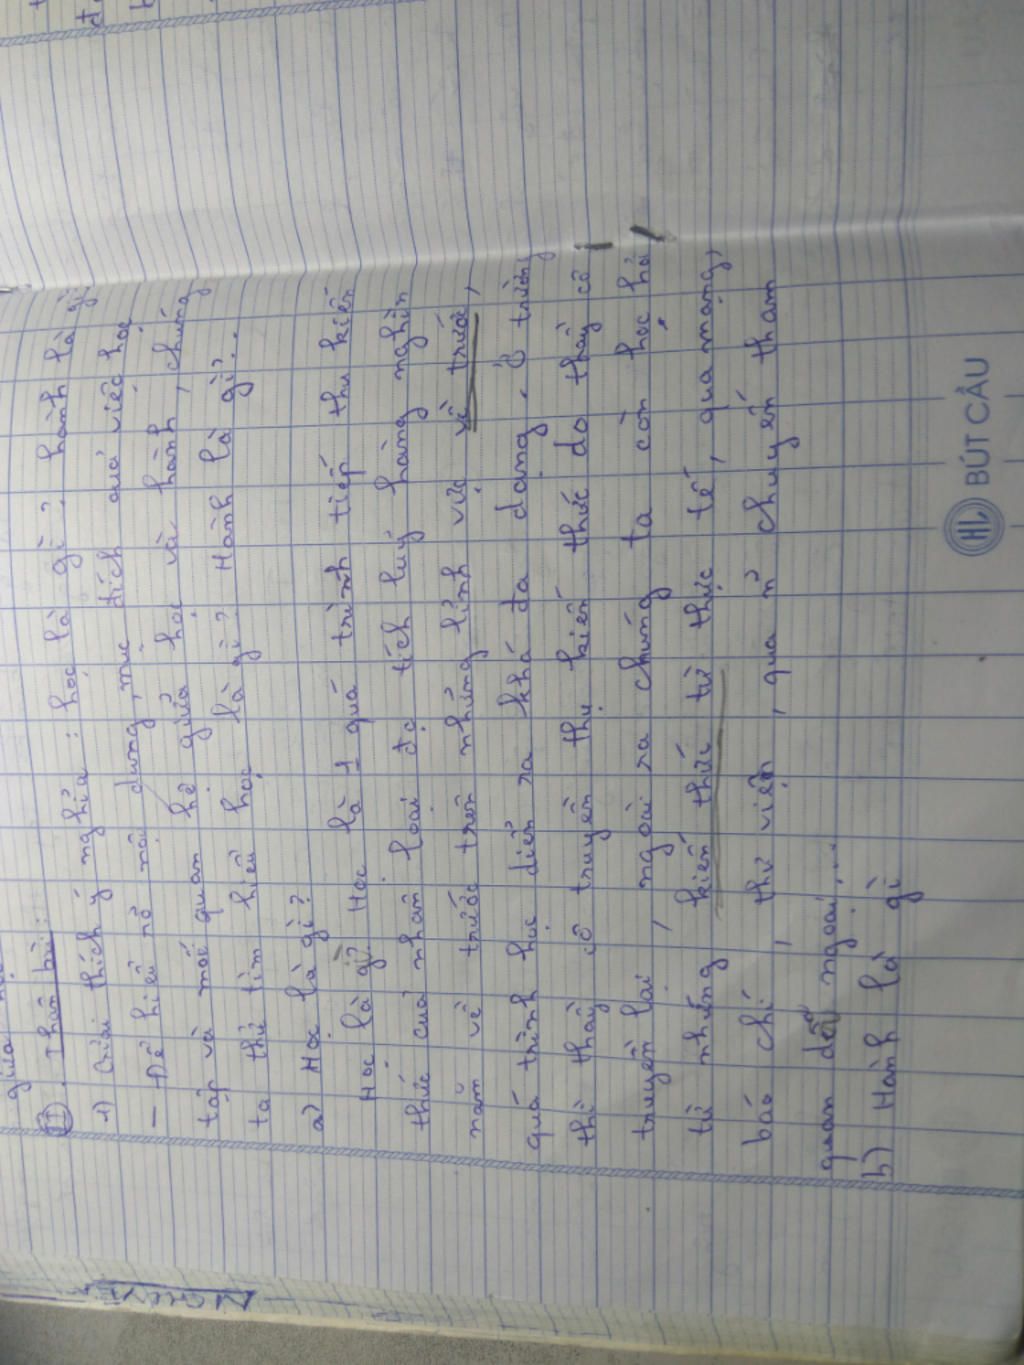 giữa
II. Thân bài:
1) Giải thích ý nghĩa: học là gì?, hành là gì
- Để hiểu rõ nội dung, mục đích của việc học
tập và mối quan hệ giữa học và hành, chúng
ta thử tìm hiểu học là gì? Hành là gì?.
a) Học là gì?
Học là gì? Học là 1 quá trình tiếp thu kiến
thức của nhân loại đc tích luỹ hàng nghìn
năm về trước trên những lĩnh vực về trước,
quá trình học diễn ra khá đa dạng, ở trường
thì thầy cô truyền thụ kiến thức do thầy cô
truyền lại, ngoài ra chúng ta còn học hỏi
từ những kiến thức từ thực tế, qua mạng,
báo chí, thư viện, qua n~ chuyến tham
quan dã ngoại,...
b) Hành là gì
BÚT CẦU
NGUYỄN